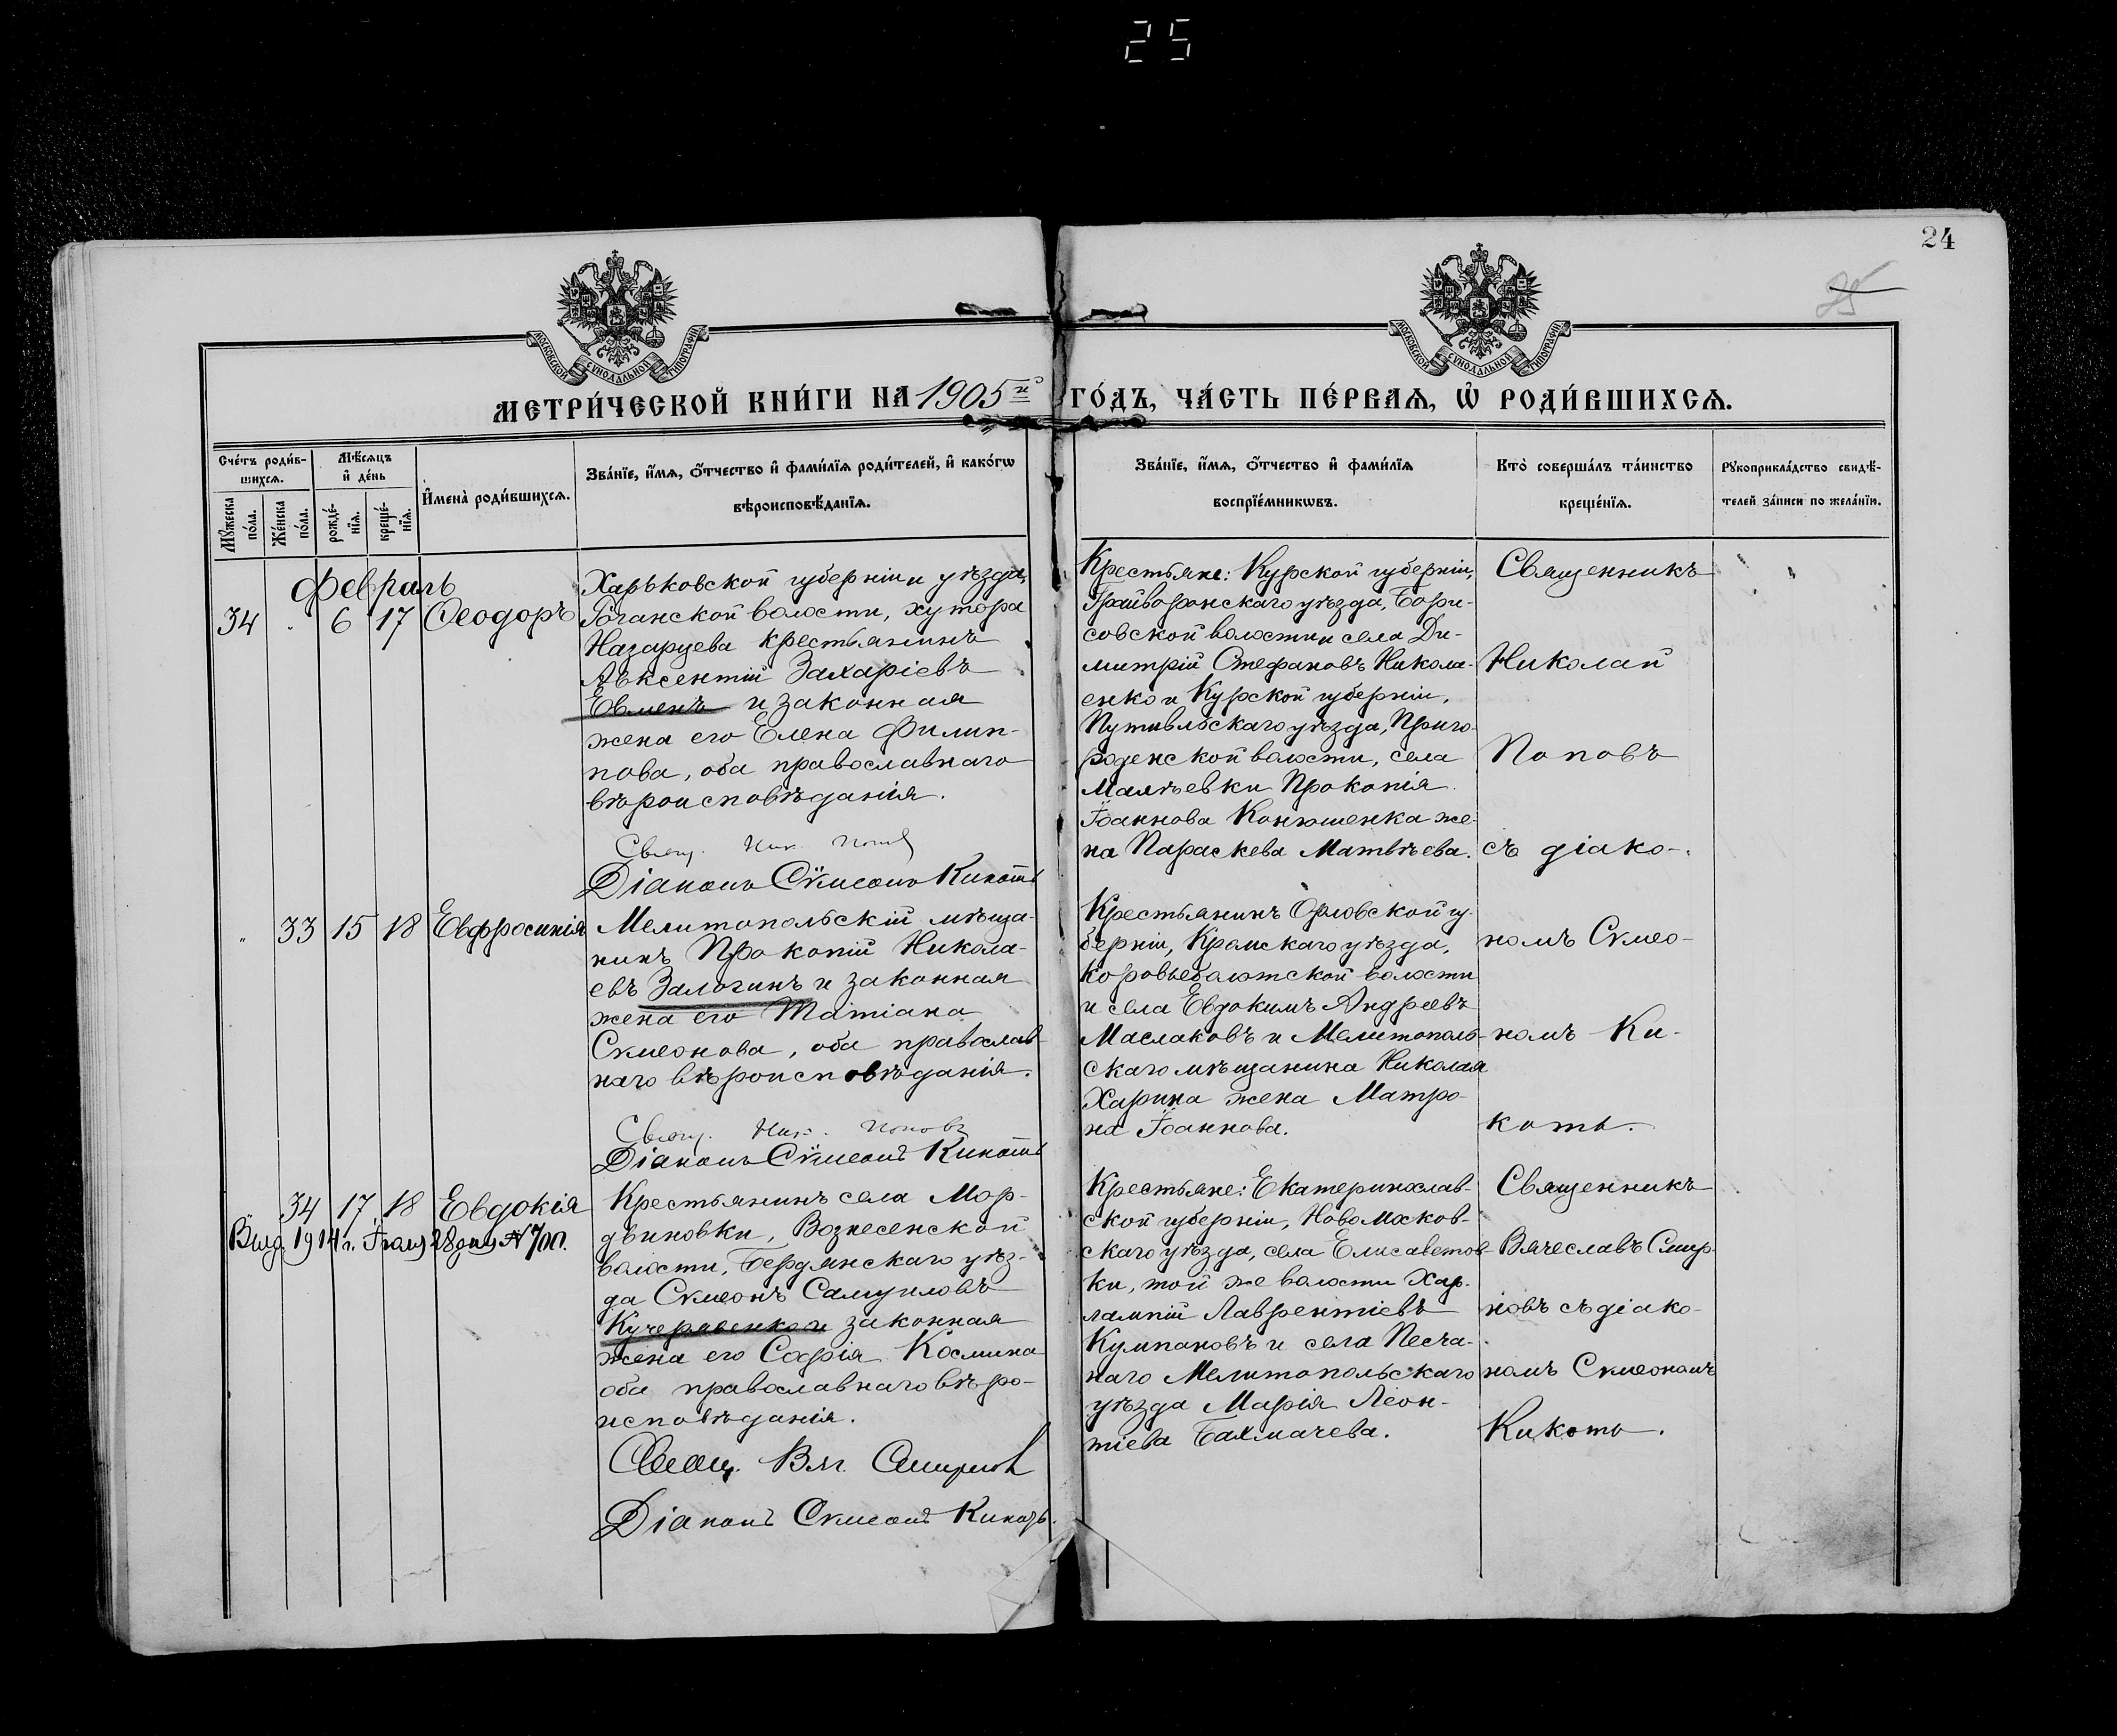 25
24
25
МОСКОВСКОЙ СѴНОДАЛЬНОЙ ТИПОГРАФІИ
МОСКОВСКОЙ СѴНОДАЛЬНОЙ ТИПОГРАФІИ
МЕТРИ́ЧЕСКОЙ КНИ́ГИ НА 1905й ГО́ДЪ, ЧА́СТЬ ПЕ́РВАѦ, Ѡ҆ РОДИ́ВШИХСѦ.
Сче́тъ роди́в-
шихсѧ.
Мѣ́сѧцъ
и҆ де́нь
Мꙋжеска по́ла.
Же́нска по́ла.
рожде́-
нїѧ.
креще́-
нїѧ.
И҆мена̀ роди́вшихсѧ.
Зва́нїе, и҆́мѧ, ѻ҆́тчество и҆ фами́лїѧ роди́телей, и҆ како́гѡ
вѣроисповѣ́данїѧ.
Зва́нїе, и҆́мѧ, ѻ҆́тчество и҆ фами́лїѧ
воспрїе́мникѡвъ.
Кто̀ соверша́лъ та́инство
креще́нїѧ.
Рꙋкоприкла́дство свидѣ́-
телей за́писи по жела́нїю.
Февраль
34 " 6 17 Ѳеодоръ
Харьковской губерніи уѣзда,
Роганской волости, хутора
Назарцева крестьянинъ
Авксентій Захаріевъ
Евменъ и законная
жена его Елена Филип-
пова, оба православнаго
вѣроисповѣданія.
Свящ. Ник. Попов
Діаконъ Сѵмеонъ Кикоть
Крестьяне: Курской губерніи,
Грайворонскаго уѣзда, Бори-
совской волости и села Ди-
митрій Стефановъ Никола-
енко и Курской губерніи,
Путивльскаго уѣзда, Приго-
роденской волости, села
Малѣевки Прокопія
Іоаннова Конюшенка же-
на Параскева Матвѣева.
Священникъ
Николай
Поповъ
съ діако-
" 33 15 18 Евфросинія
Мелитопольскій мѣща-
нинъ Прокопій Никола-
евъ Залогинъ и законная
жена его Татіана
Сѵмеонова, оба православ-
наго вѣроисповѣданія.
Свящ. Ник. Поповъ
Діаконъ Сѵмеонъ Кикоть
Крестьянинъ Орловской гу-
берніи, Кромскаго уѣзда,
Коровьеболотской волости
и села Евдокимъ Андреевъ
Маслаковъ и Мелитополь-
скаго мѣщанина Николая
Харина жена Матро-
на Іоаннова.
номъ Сѵмео-
номъ Ки-
коть.
34 17 18 Евдокія
Выд. 1914 г. Іюля 28 дня № 700.
Крестьянинъ села Мор-
двиновки, Вознесенской
волости, Бердянскаго уѣз-
да Сѵмеонъ Самуиловъ
Кучерявенко и законная
жена его Софія Космина
оба православнаго вѣро-
исповѣданія.
Свящ. Вяч. Смирнов
Діаконъ Сѵмеонъ Кикоть.
Крестьяне: Екатеринослав-
ской губерніи, Новомосков-
скаго уѣзда, села Елисаветов-
ки, той же волости Хар-
лампій Лаврентіевъ
Кумпановъ и села Песча-
наго Мелитопольскаго
уѣзда Марія Леон-
тіева Бахмачева.
Священникъ
Вячеславъ Смир-
новъ съ діако-
номъ Сѵмеономъ
Кикоть.